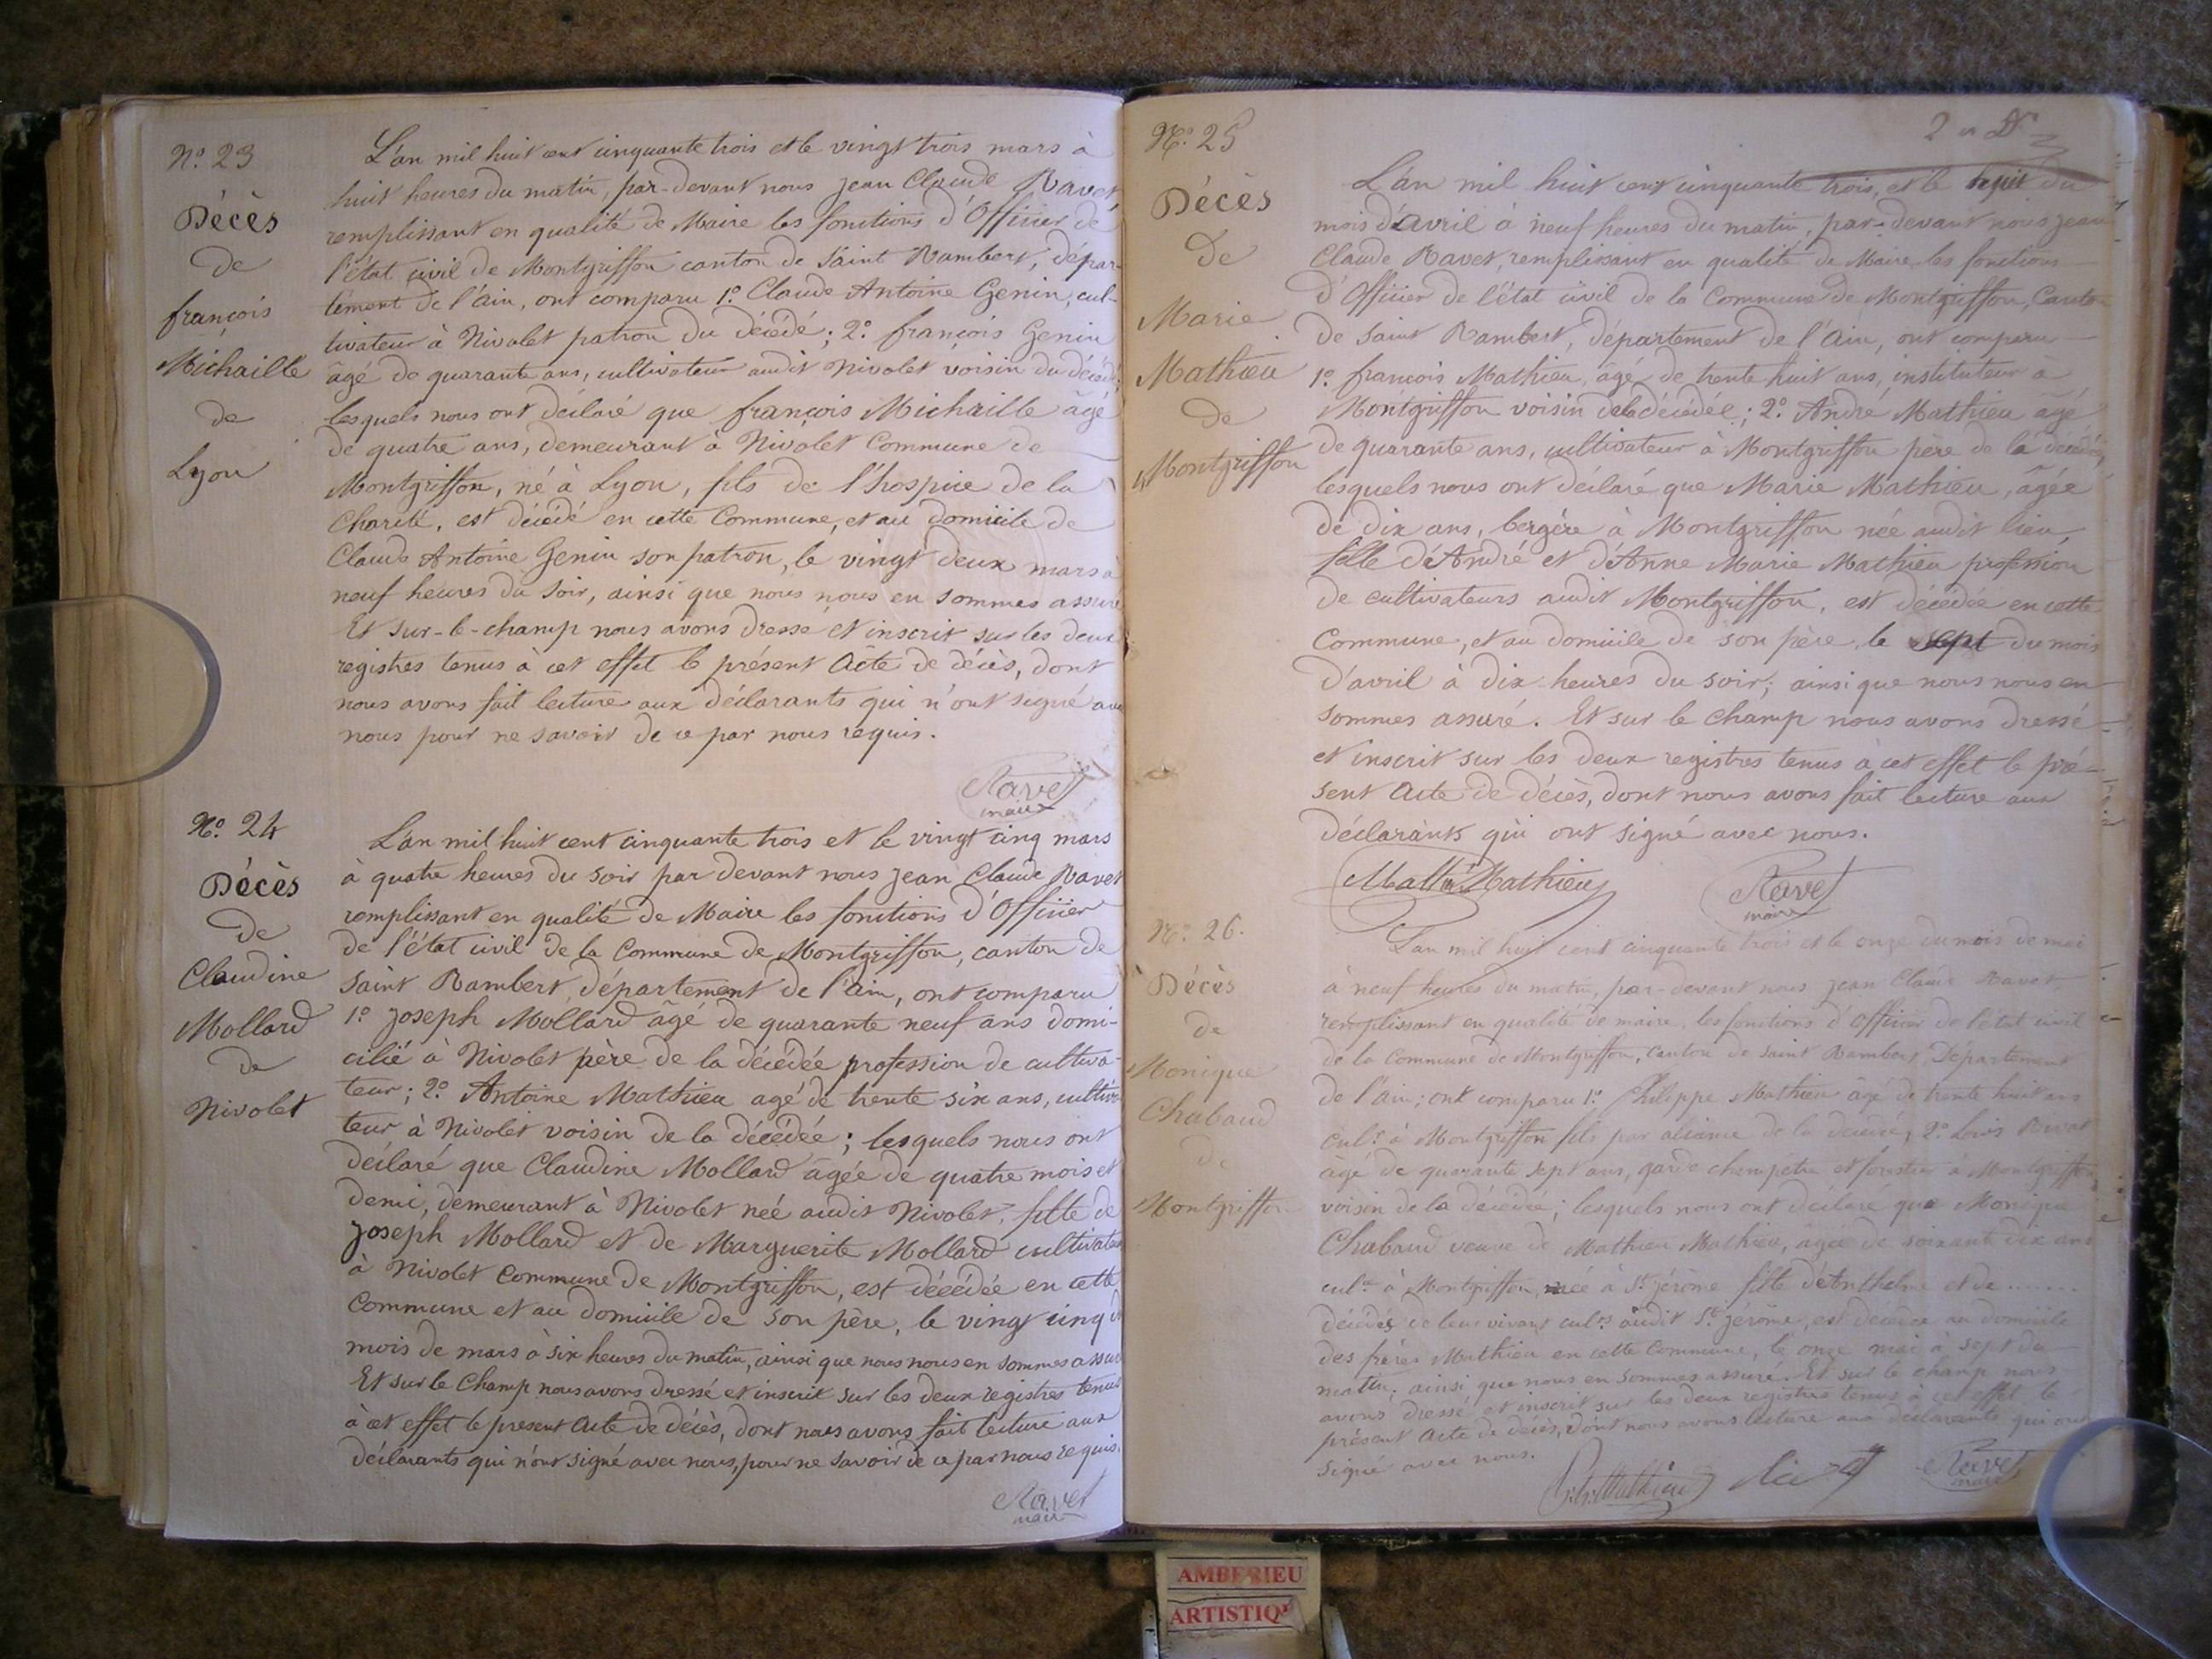 N.° 23
Décès
de
françois
Michaille
de
Lyon
L'an mil huit cent cinquante trois et le vingt trois mars à
huit heures du matin, par-devant nous jean Claude Ravet
remplissant en qualité de Maire les fonctions d'Officier de
l'état civil de Montgriffon canton de Saint Rambert, dépar-
tement de l'ain, ont comparu 1.° Claude Antoine Genin, cul-
tivateur à Nivolet patron du décédé; 2.° françois Genin
âgé de quarante ans, cultivateur audit Nivolet voisin du décédé;
lesquels nous ont déclaré que françois Michaille âgé
de quatre ans, demeurant à Nivolet Commune de
Montgriffon, né à Lyon, fils de l'hospice de la
Charité, est décédé en cette Commune, et au domicile de
Claude Antoine Genin son patron, le vingt deux mars à
neuf heures du soir, ainsi que nous nous en sommes assuré
Et sur-le-champ nous avons dressé et inscrit sur les deux
registres tenus à cet effet le présent Acte de décès, dont
nous avons fait lecture aux déclarants qui n'ont signé avec
nous pour ne savoir de ce par nous requis.
Ravet
maire
N.° 24
Décès
de
Claudine
Mollard
de
Nivolet
L'an mil huit cent cinquante trois et le vingt cinq mars
à quatre heures du soir par devant nous jean Claude Ravet
remplissant en qualité de Maire les fonctions d'Officier
de l'état civil de la Commune de Montgriffon, canton de
saint Rambert, département de l'ain, ont comparu
1.° joseph Mollard âgé de quarante neuf ans domi-
cilié à Nivolet père de la décédée profession de cultiva-
teur; 2.° Antoine Mathieu agé de trente six ans, cultiva-
teur à Nivolet voisin de la décédée; lesquels nous ont
déclaré que Claudine Mollard âgée de quatre mois et
demi, demeurant à Nivolet née audit Nivolet, fille de
joseph Mollard et de Marguerite Mollard cultivateurs
à Nivolet Commune de Montgriffon, est décédée en cette
Commune et au domicile de son père, le vingt cinq du
mois de mars à six heures du matin, ainsi que nous nous en sommes assuré
Et sur le Champ nous avons dressé et inscrit sur les deux registres tenus
à cet effet le present Acte de décès, dont nous avons fait lecture aux
déclarants qui n'ont signé avec nous, pour ne savoir de ce par nous requis.
Ravet
maire
N.° 25
Décès
de
Marie
Mathieu
de
Montgriffon
L'an mil huit cent cinquante trois, et le huit du
mois d'avril à neuf heures du matin, par-devant nous jean
Claude Ravet, remplissant en qualité de Maire les fonctions
d'Officier de l'état civil de la Commune de Montgriffon, Canton
de saint Rambert, département de l'Ain, ont comparu
1.° françois Mathieu, âgé de trente huit ans, instituteur a
Montgriffon voisin de la décédée; 2.° André Mathieu âgé
de quarante ans, cultivateur à Montgriffon père de la décédée,
lesquels nous ont déclaré que Marie Mathieu, âgée
de dix ans, bergère à Montgriffon née audit lieu,
fille d'André et d'Anne Marie Mathieu profession
de cultivateurs audit Montgriffon, est décédée en cette
Commune, et au domicile de son père, le sept du mois
d'avril à dix heures du soir; ainsi que nous nous en
sommes assuré. Et sur le Champ nous avons dressé
et inscrit sur les deux registres tenus à cet effet le pré-
sent Acte de décès, dont nous avons fait lecture aux
déclarants qui ont signé avec nous.
Mathieu Ravet
maire
N.° 26.
Décès
de
Monique
Chabaud
de
Montgriffon
L'an mil huit cent cinquante trois et le onze du mois de mai
à neuf heures du matin, par-devant nous jean Claude Ravet,
remplissant en qualité de maire, les fonctions d'Officier de l'état civil
de la Commune de Montgriffon, Canton de saint Rambert, Département
de l'Ain; ont comparu 1.° Philippe Mathieu âgé de trente huit ans
cul.r à Montgriffon fils par aliance de la décédée, 2.° Louis
âgé de quarante sept ans, garde champetre et forestier à Montgriffon
voisin de la décédée; lesquels nous ont déclaré que Monique
Chabaud veuve de Mathieu Mathieu, agée de soixante dix ans
cul.r à Montgriffon, née à S.t jérôme fille d'Anthelme et de .......
décédés de leur vivant cul.rs audit S.t jérôme, est décédée au domicile
des frères Mathieu en cette Commune, le onze mai à sept du
matin; ainsi que nous en sommes assuré. Et sur le champ nous
avons dressé et inscrit sur les deux registres tenus à cet effet le
présent Acte de décès, dont nous avons lecture aux déclarants qui ont
signé avec nous.
Ravet
maire
AMBERIEU
ARTISTIQ